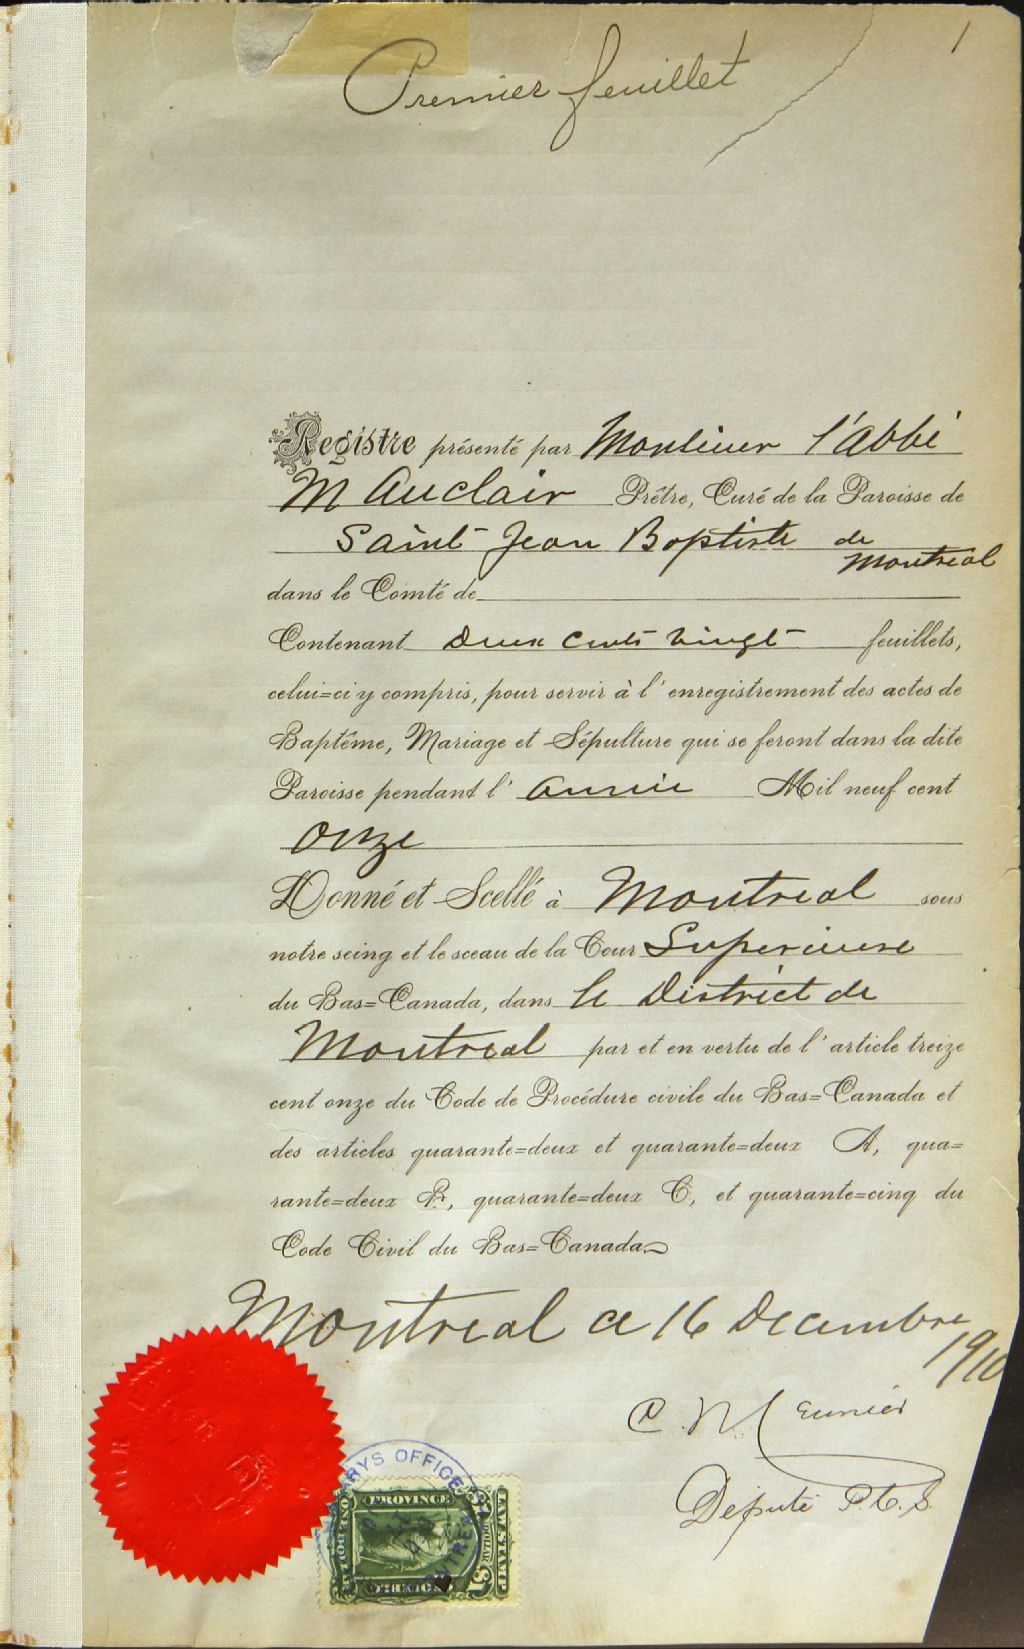 1
Premier feuillet
Registre présenté par Monsieur l'Abbé
M Auclair Prêtre, Curé de la Paroisse de
Saint Jean Baptiste de
Montreal
dans le Comté de
Contenant Deux cents vingt feuillets,
celui=ci y compris, pour servir à l'enregistrement des actes de
Baptême, Mariage et Sépulture qui se feront dans la dite
Paroisse pendant l'année Mil neuf cent
onze
Donné et Scellé à Montreal sous
notre seing et le sceau de la Cour Superieure
du Bas=Canada, dans le District de
Montreal par et en vertu de l'article treize
cent onze du Code de Procédure civile du Bas=Canada et
des articles quarante=deux et quarante=deux A, qua=
rante=deux B, quarante=deux C, et quarante=cinq du
Code Civil du Bas=Canada
Montreal ce 16 Decembre
1910
C. Meunier
Député P.C.S.
RYS OFFICE
PROVINCE
LAW STAMP
ONE DOLLAR
$1 DOLLAR $1
QUEBEC